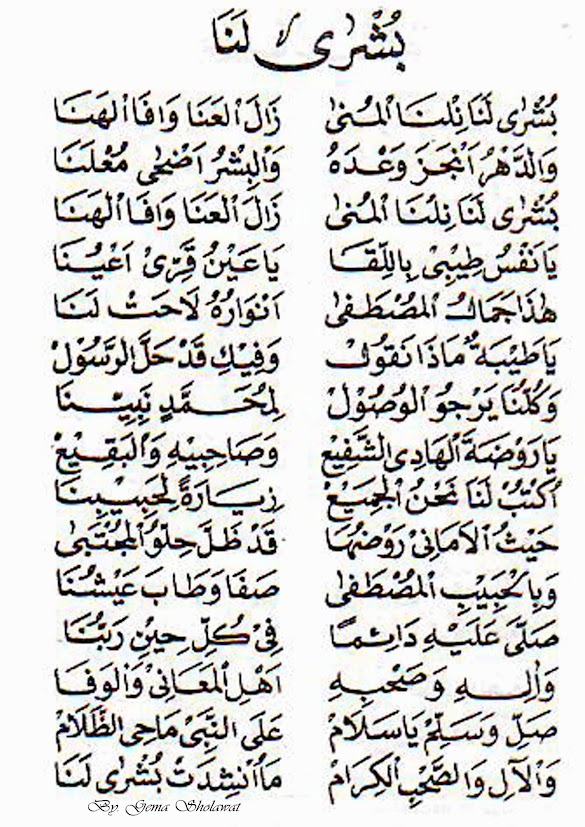 بُشْرٰى لَنَا
بُشْرٰى لَنَا نِلْنَا الْمُنٰى زَالَ الْعَنَا وَافَا الْهَنَا
وَالدَّهْرُ اَنْجَزَ وَعْدَهُ وَالْبِشْرُ اَضْحٰى مُعْلَنَا
بُشْرٰى لَنَا نِلْنَا الْمُنٰى زَالَ الْعَنَا وَافَا الْهَنَا
يَانَفْسُ طِيْبِيْ بِاللِّقَا يَاعَيْنُ قَرِّيْ اَعْيُنَا
هٰذَا جَمَالُ الْمُصْطَفٰى اَنْوَارُهُ لَاحَتْ لَنَا
يَاطَيْبَةُ مَاذَا نَقُوْلُ وَفِيْكِ قَدْ حَلَّ الرَّسُوْلْ
وَكُلُّنَا يَرْجُو الْوُصُوْلْ لِمُحَمَّدٍ نَبِيِّنَا
يَارَوْضَةَ الْهَادِى الشَّفِيْعْ وَصَاحِبَيْهِ وَالْبَقِيْعْ
اُكْتُبْ لَنَا نَحْنُ الْجَمِيْعْ زِيَارَةً لِحَبِيْبِنَا
حَيْثُ الْاَمَانِيْ رَوْضُهَا قَدْ ظَلَّ حِلْوُ الْمُجْتَبٰى
وَبِالْحَبِيْبِ الْمُصْطَفٰى صَفَا وَطَابَ عَيْشُنَا
صَلَّى عَلَيْهِ دَائِمًا فِيْ كُلِّ حِيْنٍ رَبُّنَا
وَاٰلِهِ وَصَحْبِهِ اَهْلِ الْمَعَانِيْ وَالْوَفَا
صَلِّ وَسَلِّمْ يَاسَلَامْ عَلَى النَّبِيْ مَاحِى الظَّلَامْ
وَالْآلِ وَالصَّحْبِ الْكِرَامْ مَا اُنْشِدَتْ بُشْرٰى لَنَا
By Gema Sholawat